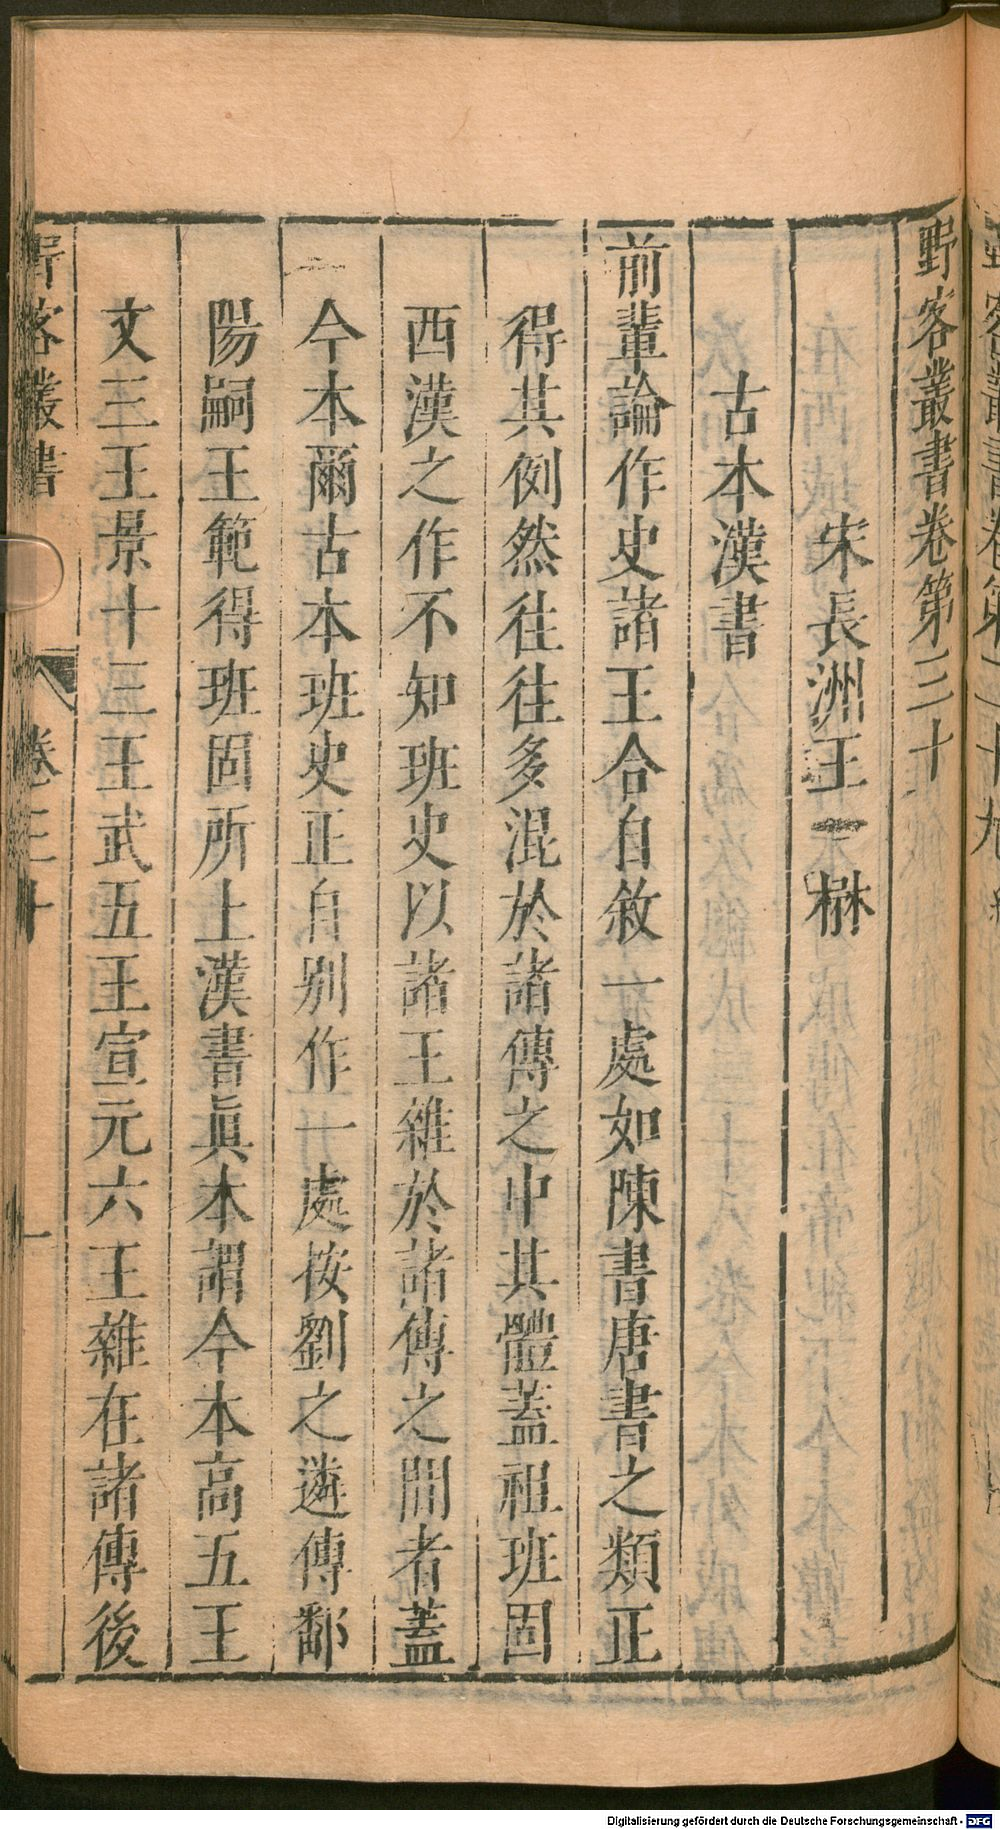 野客叢書卷第三十
宋長洲王楙
古本漢書
前輩論作史諸王合自敘一處如陳書唐書之類正
得其例然往往多混於諸傳之中其體蓋祖班固
西漢之作不知班史以諸王雜於諸傳之間者蓋
今本爾古本班史正自别作一處按劉之遴傳鄱
陽嗣王範得班固所上漢書眞本謂今本高五王
文三王景十三王武五王宣元六王雜在諸傳後
野客叢書 卷三十 一
Digitalisierung gefördert durch die Deutsche Forschungsgemeinschaft - DFG